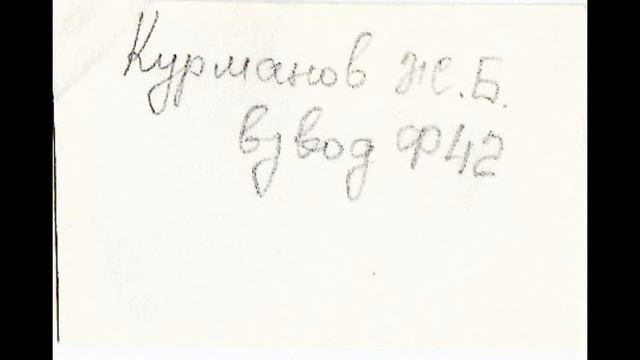 Курманов Ж.Б.
взвод Ф42